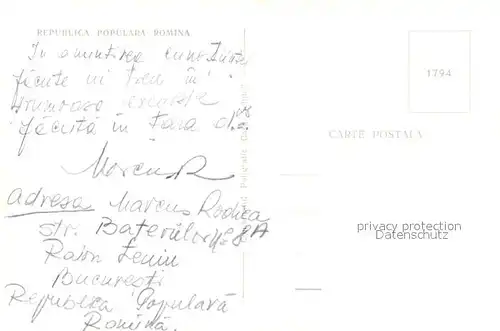 REPUBLICA POPULARA ROMINA
În amintirea
făcute în tren în
frumoasa excursie
făcută în Țara
Marcus R
Adresa Marcus Rodica
str. 8A
Raion Lenin
București
Republica Populară
Romînă.
1794
CARTE POSTALA
privacy protection
Datenschutz